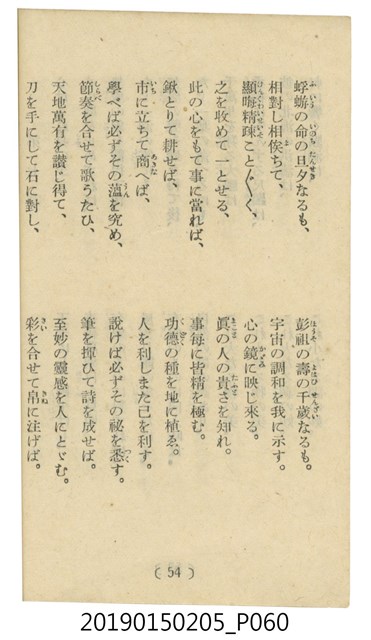 蜉蝣の命の旦夕なるも、
彭祖の壽の千歲なるも。
相對し相俟ちて、
宇宙の調和を我に示す。
顯晦精疎こと〴〵く、
心の鏡に映じ來る。
之を收めて一とせる、
眞の人の貴さを知れ。
此の心をもて事に當れば、
事每に皆精を極む。
鍬とりて耕せば、
功德の種を地に植ゑ。
市に立ちて商へば、
人を利しまた己を利す。
學べば必ずその蘊を究め、
說けば必ずその祕を悉す。
節奏を合せて歌うたひ、
筆を揮ひて詩を成せば。
天地萬有を讃じ得て、
至妙の靈感を人にとゞむ。
刀を手にして石に對し、
彩を合せて帛に注げば。
( 54 )
20190150205_P060